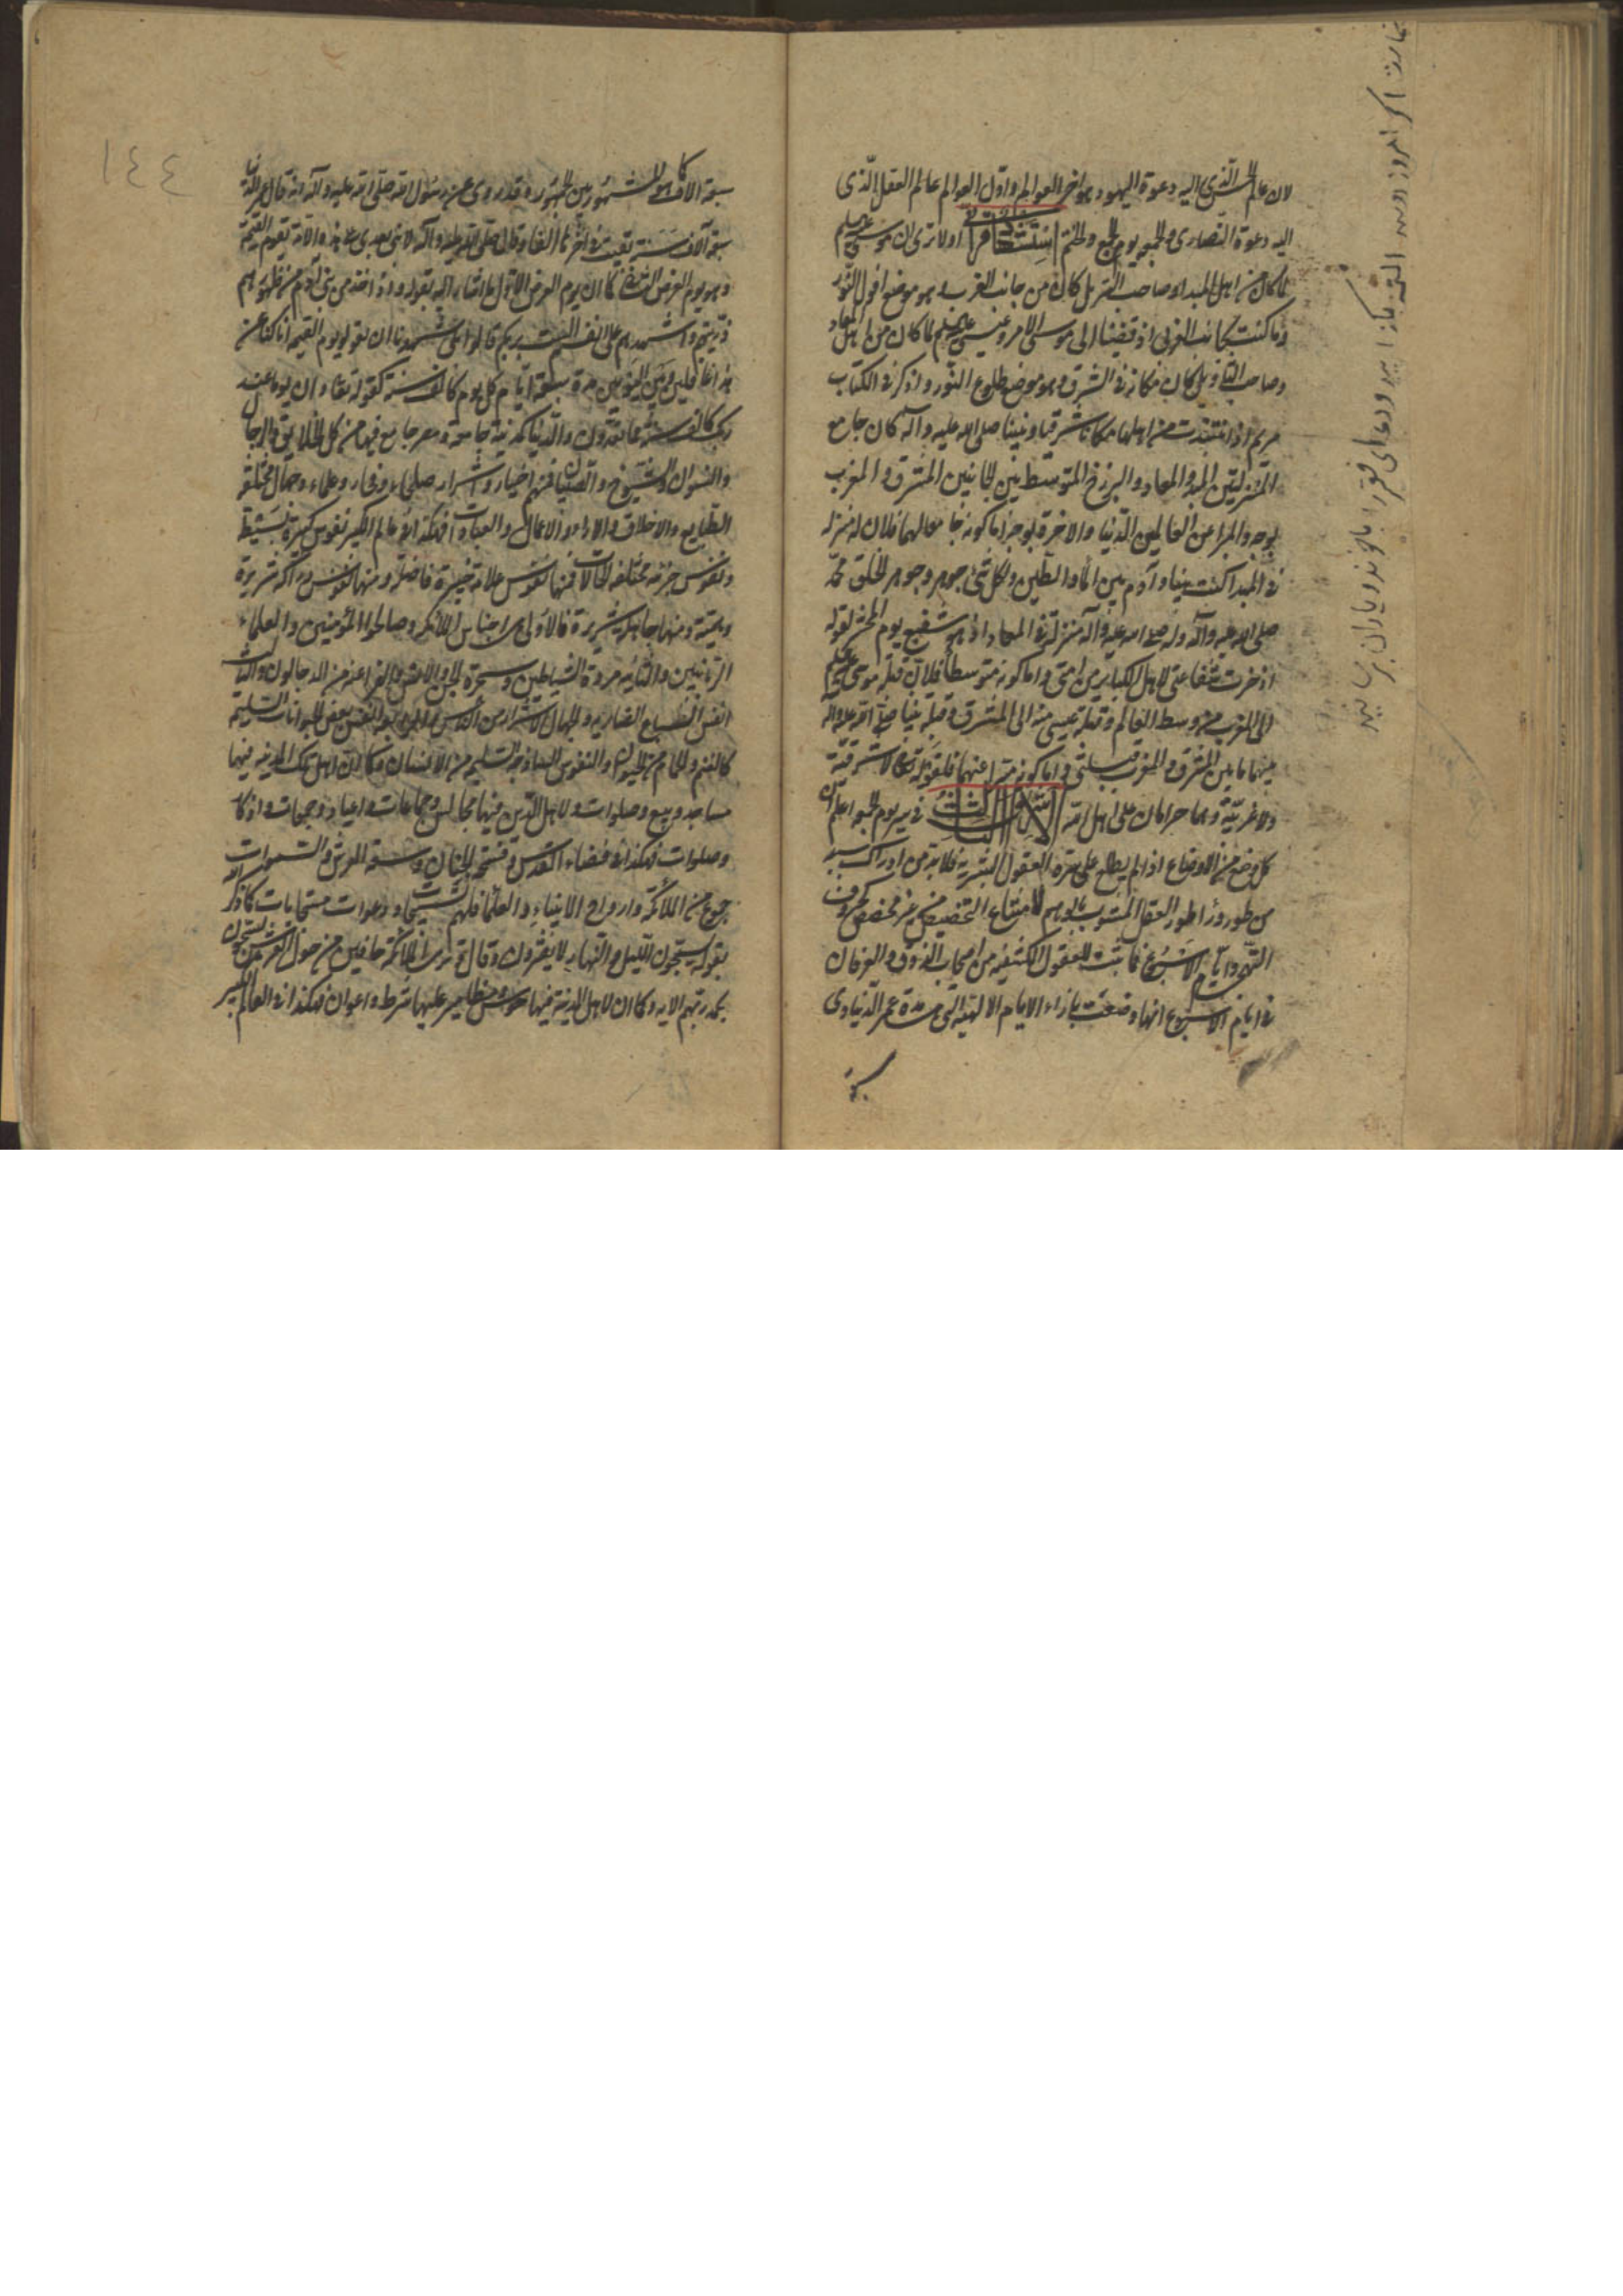 لان عالم الحس الذى اليه دعوة اليهود هو اخر العوالم واول العوالم عالم العقل الذى
اليه دعوة النصارى والجمعه يوم الجمع والختم استشهاد قرانى اولا ترى ان موسى
لما كان من اهل المبدا وصاحب التنزيل كان من جانب الغرب وهو موضع افول النور
وما كنت بجانب الغربى اذ قضينا الى موسى الامر وعيسى لما كان من اهل المعاد
وصاحب التاويل كان مكانه فى الشرق وهو موضع طلوع النور واذكر فى الكتاب
مريم اذ انتبذت من اهلها مكانا شرقيا ونبينا صلى الله عليه وآله كان جامع
المنزلتين المبدا والمعاد والبرزخ المتوسط بين الجانبين المشرق والمغرب
بوجه والمبرا عن العالمين الدنيا والاخرة بوجه اما كونه جامعا لهما فلان له منزله
فى المبدا كنت نبيا وآدم بين الماء والطين ولكل شئ جوهر وجوهر الخلق محمد
صلى الله عليه وآله وله صلى الله عليه وآله منزلة فى المعاد اذ هو شفيع يوم الحشر لقوله
ادخرت شفاعتى لاهل الكباير من امتى واما كونه متوسطا فلان قبلة موسى
الى المغرب من وسط العالم وقبلة عيسى منه الى المشرق وقبلة نبينا صلى الله عليه وآله
بينهما ما بين المشرق والمغرب قبلتى واما كونه مبرا عنهما فلقوله تعالى لا شرقية
ولا غربية وهما حرامان على اهل الله الاشراق الثالث فى سر يوم الجمعه اعلم ان
كل وضع من الاوضاع اذا لم يطلع على سره العقول البشرية فلابد من ادراك سره
من طور وراء طور العقل المشوب بالوهم لامتناع التخصيص من غير مخصص كحروف
التهجى وايام الاسبوع فما ثبت للعقول الكشفيه من اصحاب الذوق والعرفان
فى ايام الاسبوع انها وضعت بازاء الايام الالهية التى هى مدة عمر الدنيا وهى
١٤٤
سبعة الاف كما هو المشهور بين الجمهور وقد روى عن رسول الله صلى الله عليه وآله انه قال عمر الدنيا
سبعة آلاف سنة بعثت فى اخرها الفا وقال صلى الله عليه وآله لا نبى بعدى
وهو يوم العرض الثانى كما ان يوم العرض الاول ما اشار اليه بقوله واذ اخذ من بنى آدم من ظهورهم
ذريتهم واشهدهم على انفسهم الست بربكم قالوا بلى شهدنا ان تقولوا يوم القيمه انا كنا عن
هذا غافلين وبين اليومين مدة سبعة ايام كل يوم كالف سنة كقوله تعالى وان يوما عند
ربك كالف سنة مما تعدون والدنيا كمدينة جامعة ومصر جامع فيها من كل الخلايق والرجال
والنسوان والشيوخ والصبيان فمنهم اخيار واشرار صلحاء وفجار وعلماء وجهال مختلفو
الطبايع والاخلاق والاراء والاعمال والعادات فهكذا العالم الكبير نفوس كثيرة بسيطة
ونفوس جزئيه مختلفه الحالات فمنها نفوس علامة خيرة فاضلة ومنها نفوس دراكه شريرة
ومنها جاهلة شريرة فالاولى هى اجناس الملائكه وصالحوا المؤمنين والعلماء
الربانيين والثانيه مردة الشياطين وسحرة الجن والانس والفراعنه من الدجالون والثالثه
انفس السباع الضاريه والجهال الاشرار من الناس
كالغنم والحمام والنفوس الساذجه السليمه من الانسان وكما ان لاهل تلك المدينه فيها
مساجد وبيع وصلوات ولاهل الدين فيها مجالس وجماعات واعياد وجمعات واذكار
وصلوات فهكذا فى فضاء القدس وفسحة الجنان وسعة العرش والسموات
جموع من الملائكة وارواح الانبياء والعلماء فلهم تسبيحات ودعوات مستجابات كما ذكر الله
بقوله يسبحون الليل والنهار لا يفترون وقال وترى الملائكة حافين من حول العرش يسبحون
بحمد ربهم الايه وكما ان لاهل المدينة فيها حبوس ومطامير عليها شرط واعوان فهكذا فى العالم الكبير